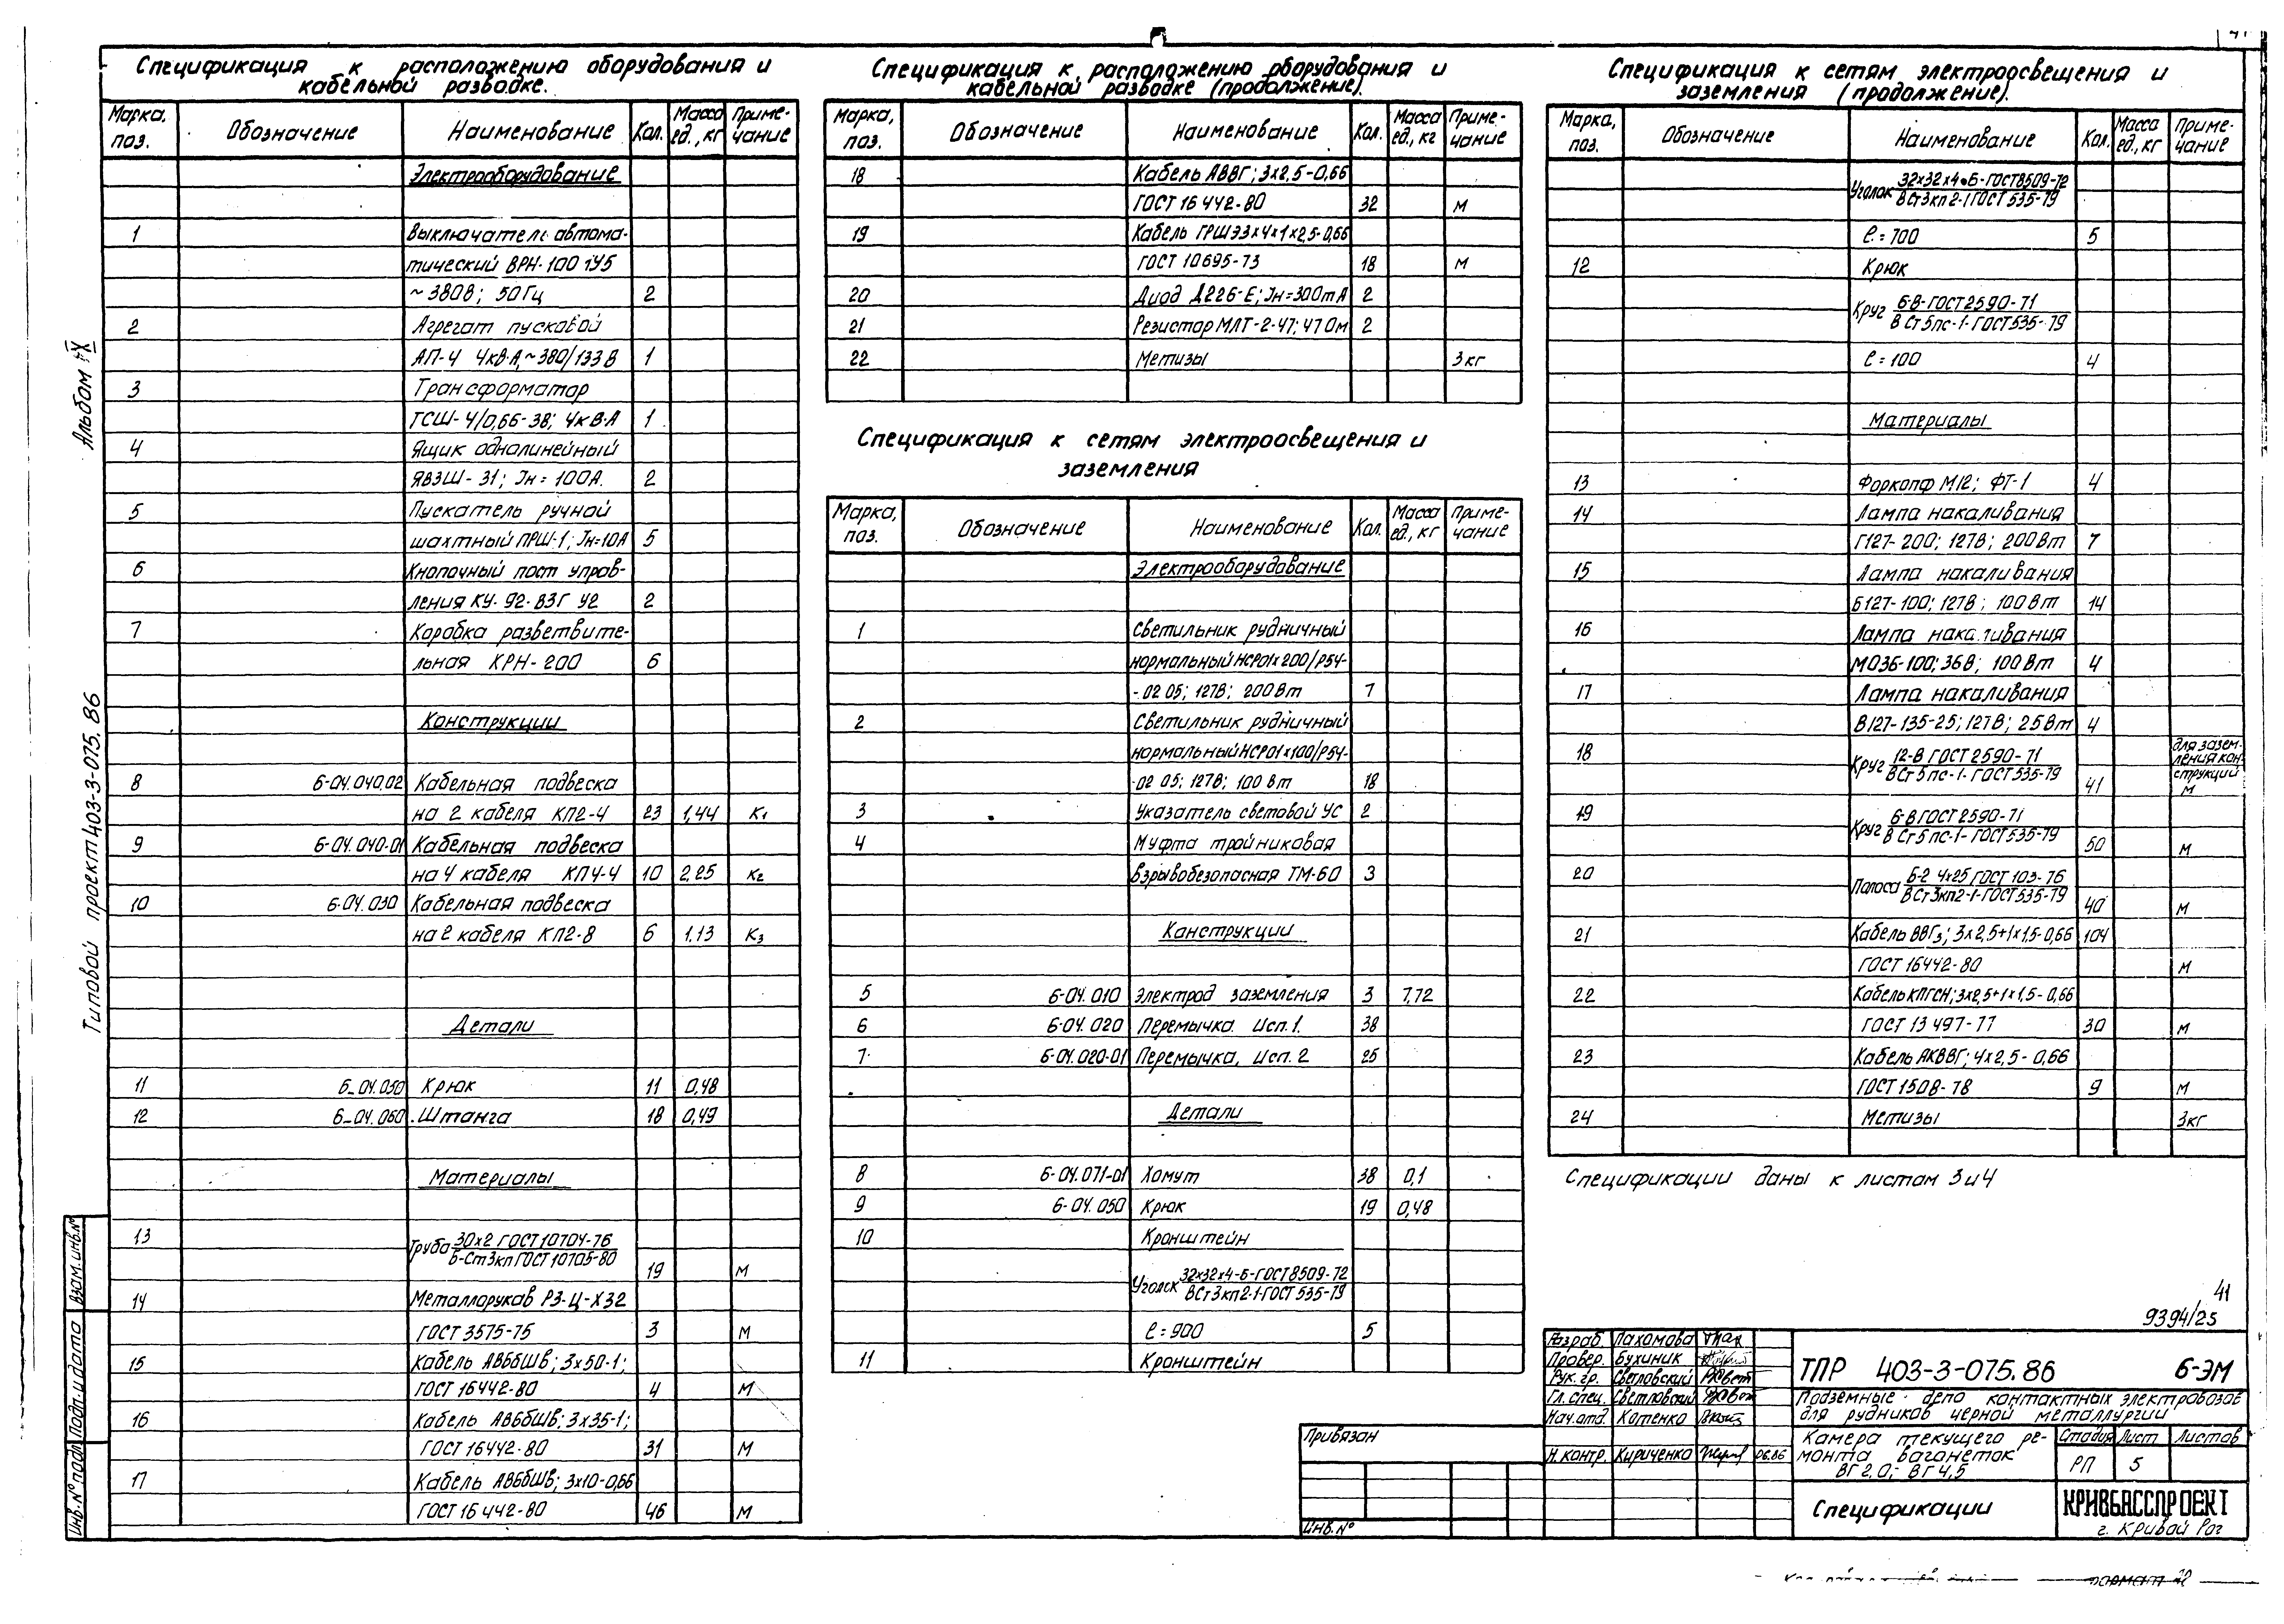 Спецификация к расположению оборудования и
кабельной разводке.
Марка, поз. Обозначение Наименование Кол. Масса ед., кг Приме-чание
Электрооборудование
1 Выключатель автома-
тический ВРН-100 1У5
~380В; 50Гц 2
2 Агрегат пусковой
АП-4 4кВ·А, ~380/133В 1
3 Трансформатор
ТСШ-4/0,66-38; 4кВ·А 1
4 Ящик однолинейный
ЯВЗШ-31; Jн=100А. 2
5 Пускатель ручной
шахтный ПРШ-1; Jн=10А 5
6 Кнопочный пост управ-
ления КУ-92-ВЗГ У2 2
7 Коробка разветвите-
льная КРН-200 6
Конструкции
8 6-04.040.02 Кабельная подвеска
на 2 кабеля КП2-4 23 1,44 К1
9 6-04.040-01 Кабельная подвеска
на 4 кабеля КП4-4 10 2,25 К2
10 6-04.030 Кабельная подвеска
на 2 кабеля КП2-8 6 1,13 К3
Детали
11 6-04.050 Крюк 11 0,48
12 6-04.060 Штанга 18 0,49
Материалы
13 Труба 30х2 ГОСТ 10704-76
Б-Ст3кп ГОСТ 10705-80
19 м
14 Металлорукав РЗ-Ц-Х32
ГОСТ 3575-75 3 м
15 Кабель АВБбШв; 3х50-1;
ГОСТ 16442-80 4 м
16 Кабель АВБбШв; 3х35-1;
ГОСТ 16442-80 31 м
17 Кабель АВБбШв; 3х10-0,66
ГОСТ 16442-80 46 м
Спецификация к расположению оборудования и
кабельной разводке (продолжение).
Марка, поз. Обозначение Наименование Кол. Масса ед., кг Приме-чание
18 Кабель АВВГ; 3х2,5-0,66
ГОСТ 16442-80 32 м
19 Кабель ГРШЭ3х4х1х2,5-0,66
ГОСТ 10695-73 18 м
20 Диод Д226-Е; Jн=300mА 2
21 Резистор МЛТ-2-47; 47Ом 2
22 Метизы 3кг
Спецификация к сетям электроосвещения и
заземления
Марка, поз. Обозначение Наименование Кол. Масса ед., кг Приме-чание
Электрооборудование
1 Светильник рудничный
нормальный НСР01х200/Р54-
-.02 05; 127В; 200Вт 7
2 Светильник рудничный
нормальный НСР01х100/Р54-
-02 05; 127В; 100Вт 18
3 Указатель световой УС 2
4 Муфта тройниковая
взрывобезопасная ТМ-60 3
Конструкции
5 6-04.010 Электрод заземления 3 7,72
6 6-04.020 Перемычка. Исп. 1. 38
7 6-04.020-01 Перемычка, Исп. 2 25
Детали
8 6-04.071-01 Хомут 38 0,1
9 6-04.050 Крюк 19 0,48
10 Кронштейн
Уголок 32х32х4-Б-ГОСТ8509-72
ВСт3кп2-1-ГОСТ 535-79
ℓ=900 5
11 Кронштейн
Спецификация к сетям электроосвещения и
заземления (продолжение).
Марка, поз. Обозначение Наименование Кол. Масса ед., кг Приме-чание
Уголок 32х32х4-Б-ГОСТ8509-72
ВСт3кп2-1 ГОСТ 535-79
ℓ=700 5
12 Крюк
Круг 6-В-ГОСТ2590-71
ВСт5пс-1-ГОСТ535-79
ℓ=100 4
Материалы
13 Форкопф М12; ФТ-1 4
14 Лампа накаливания
Г127-200; 127В; 200Вт 7
15 Лампа накаливания
Б127-100; 127В; 100Вт 14
16 Лампа накаливания
МО36-100; 36В; 100Вт 4
17 Лампа накаливания
В127-135-25; 127В; 25Вт 4
18 Круг 12-В ГОСТ 2590-71
ВСт5пс-1-ГОСТ535-79
41 для зазем-ления кон-струкций м
19 Круг 6-В ГОСТ 2590-71
ВСт5пс-1-ГОСТ535-79
50 м
20 Полоса Б-2 4х25 ГОСТ 103-76
ВСт3кп2-1-ГОСТ535-79
40 м
21 Кабель ВВГз; 3х2,5+1х1,5-0,66 104
ГОСТ 16442-80 м
22 Кабель КПГСН; 3х2,5+1х1,5-0,66
ГОСТ 13497-77 30 м
23 Кабель АКВВГ; 4х2,5-0,66
ГОСТ 1508-78 9 м
24 Метизы 3кг
Спецификации даны к листам 3 и 4
41
9394/25
Разраб. Пахомова
Провер. Бухиник
Рук. гр. Светловский
Гл. спец. Светловский
Нач. отд. Котенко
Н. контр. Кириченко 06.86
ТПР 403-3-075.86 6-ЭМ
Подземные депо контактных электровозов
для рудников черной металлургии
Камера текущего ре-
монта вагонеток
ВГ2,0; - ВГ4,5
Стадия Лист Листов
РП 5
Спецификации
КРИВБАССПРОЕКТ
г. Кривой Рог
Привязан
Инв. №
Альбом IX
Типовой проект 403-3-075.86
Взам. инв. №
Подп. и дата
Инв. № подл.
формат